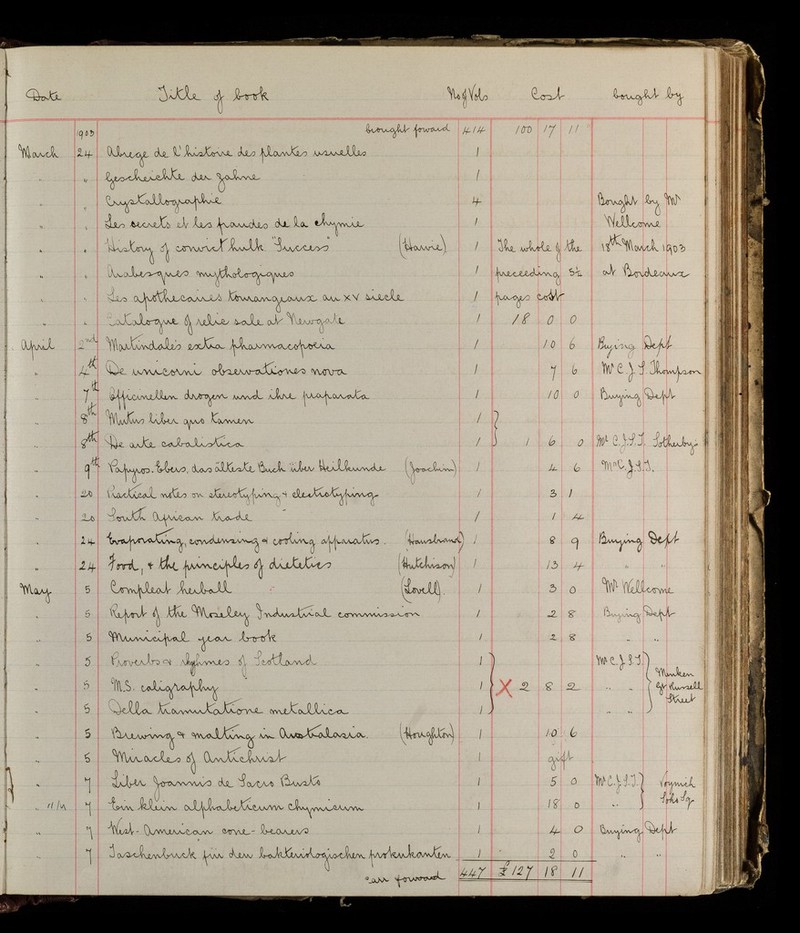 Date Title of book No of Vols Cost bought by
1903 brought forward 414 100 17 11
March 24 Abrege de l'histoire des plantes usuelles 1
" " Geschichte der Zahne 1
" " Crystallographie 4 Bought by Mr
" " Les secrets et les fraudes de la chymie 1 Wellcome
" " History of convict hulk "Success" (Harvie) 1 The whole of the 18th March 1903
" " Arabesques mythologiques 1 preceeding 5½ at Bordeaux
" " Les apothecaires tourangeaux au XV siecle 1 pages cost
" " Catalogue of relic sale at Newgate 1 18 0 0
April 2nd Martindale's extra pharmacopoeia 1 10 6 Buying Dept
" 4th De unicorni observationes nova 1 7 6 Mr C. J. S. Thompson
" 7th Officinellen drogen und ihre praparata 1 10 0 Buying Dept
" 8th Mutus liber quo tamen 1
" 8th De arte cabalistica 1 1 6 0 Mr C. J. S. T. Sotheby's
" 9th Papyros. Ebers, das älteste Buch über Heilkunde (Joachim) 1 4 6 Mr C. J. S. T.
" 20 Practical notes on stereotyping & electrotyping 1 3 1
" 20 South African trade 1 1 4
" 24 Evaporating, condensing & cooling apparatus. (Hausbrand) 1 8 9 Buying Dept
" 24 Food, & the principles of dietetics (Hutchison) 1 13 4 " "
May 5 Compleat herball (Lovell) 1 3 0 Mr Wellcome
" 5 Report of the Moseley Industrial commission 1 2 8 Buying Dept
" 5 Municipal year book 1 2 8 " "
" 5 Proverbs & rhymes of Scotland 1 Mr C. J. S. T.
" 5 M.S. caligraphy 1 X 2 8 2 " " Menken Gt Russell Street
" 5 Della tramutatione metallica 1 " "
" 5 Brewing & malting in Australasia. (Houghton) 1 10 6
" 5 Miracles of Antichrist 1 gift
" 7 Liber Joannis de Sacro Busto 1 5 0 Mr C. J. S. T. Voynich
" 7 Ein klein alphabeticum chymicum 1 18 0 " Soho Sq.
" 7 West-American cone-bearers 1 4 0 Buying Dept
" 7 Taschenbuch für den bakteriologischen praktikanten 1 2 0 " "
Carr forward 447 £127 18 11